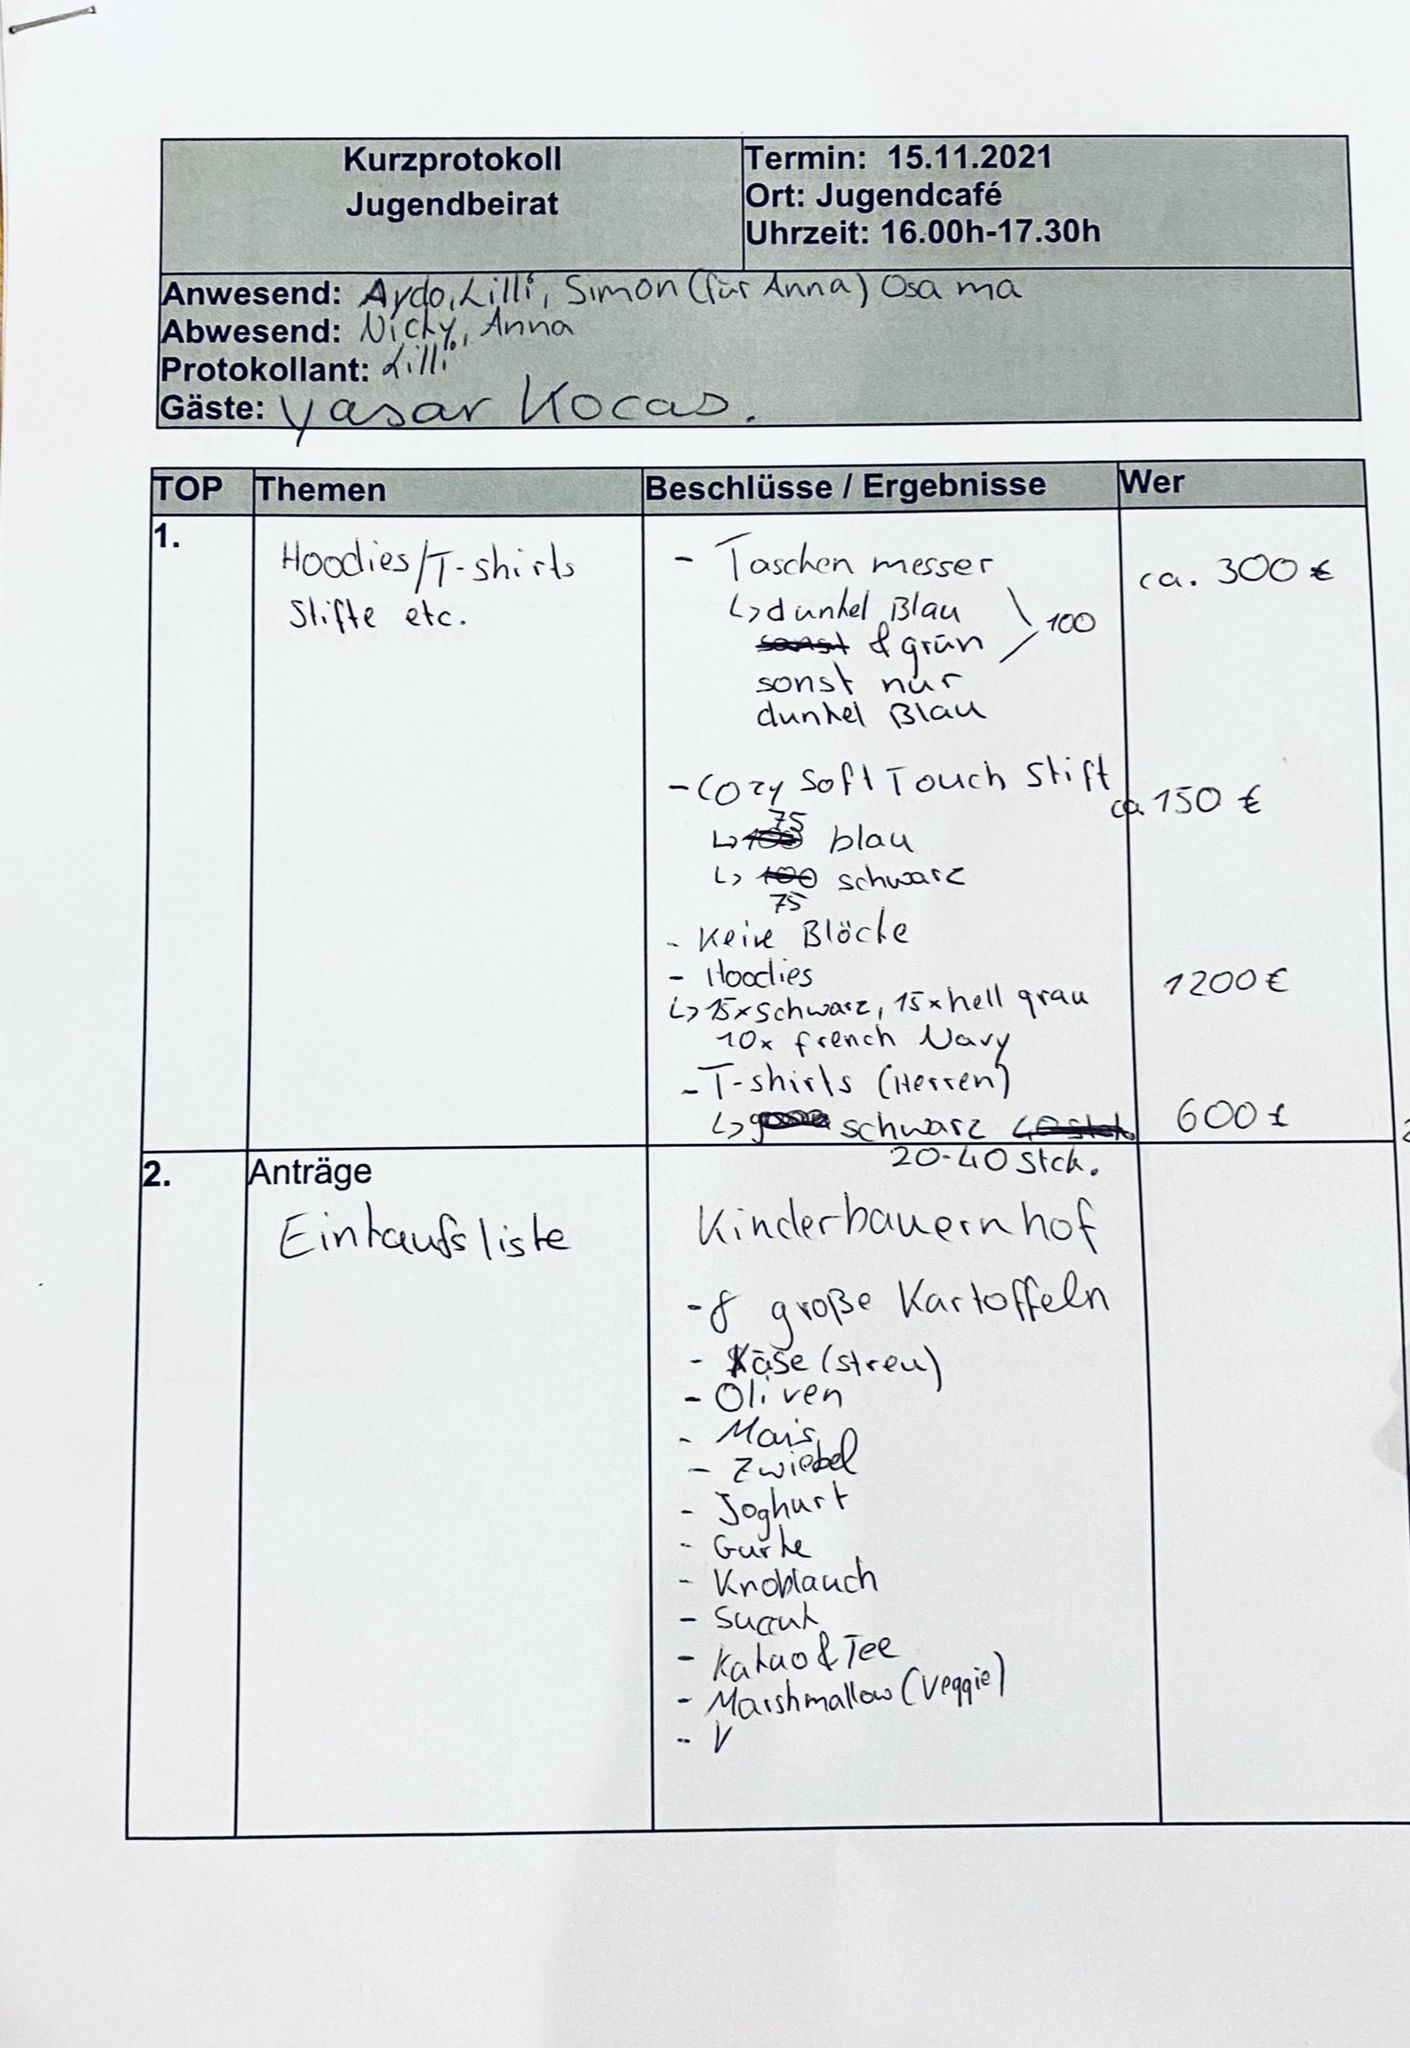 Kurzprotokoll
Jugendbeirat
Termin: 15.11.2021
Ort: Jugendcafé
Uhrzeit: 16.00h-17.30h
Anwesend: Aydo, Lilli, Simon (für Anna) Osama
Abwesend: Nicky, Anna
Protokollant: Lilli
Gäste: Yasar Kocas.
TOP Themen Beschlüsse / Ergebnisse Wer
1.
Hoodies/T-shirts
Stifte etc.
- Taschenmesser ca. 300 €
↳ dunkel Blau
sonst & grün 100
sonst nur
dunkel Blau
- Cozy Soft Touch Stift ca. 150 €
75
↳ 100 blau
↳ 100 schwarz
75
- Keine Blöcke
- Hoodies 1200 €
↳ 15x schwarz, 15x hell grau
10x french Navy
- T-shirts (Herren)
↳ schwarz 40 stck. 600 €
20-40 Stck.
2. Anträge
Einkaufsliste
Kinderbauernhof
- 8 große Kartoffeln
- Käse (streu)
- Oliven
- Mais
- Zwiebel
- Joghurt
- Gurke
- Knoblauch
- Sucuk
- Kakao & Tee
- Marshmallow (Veggie)
- V